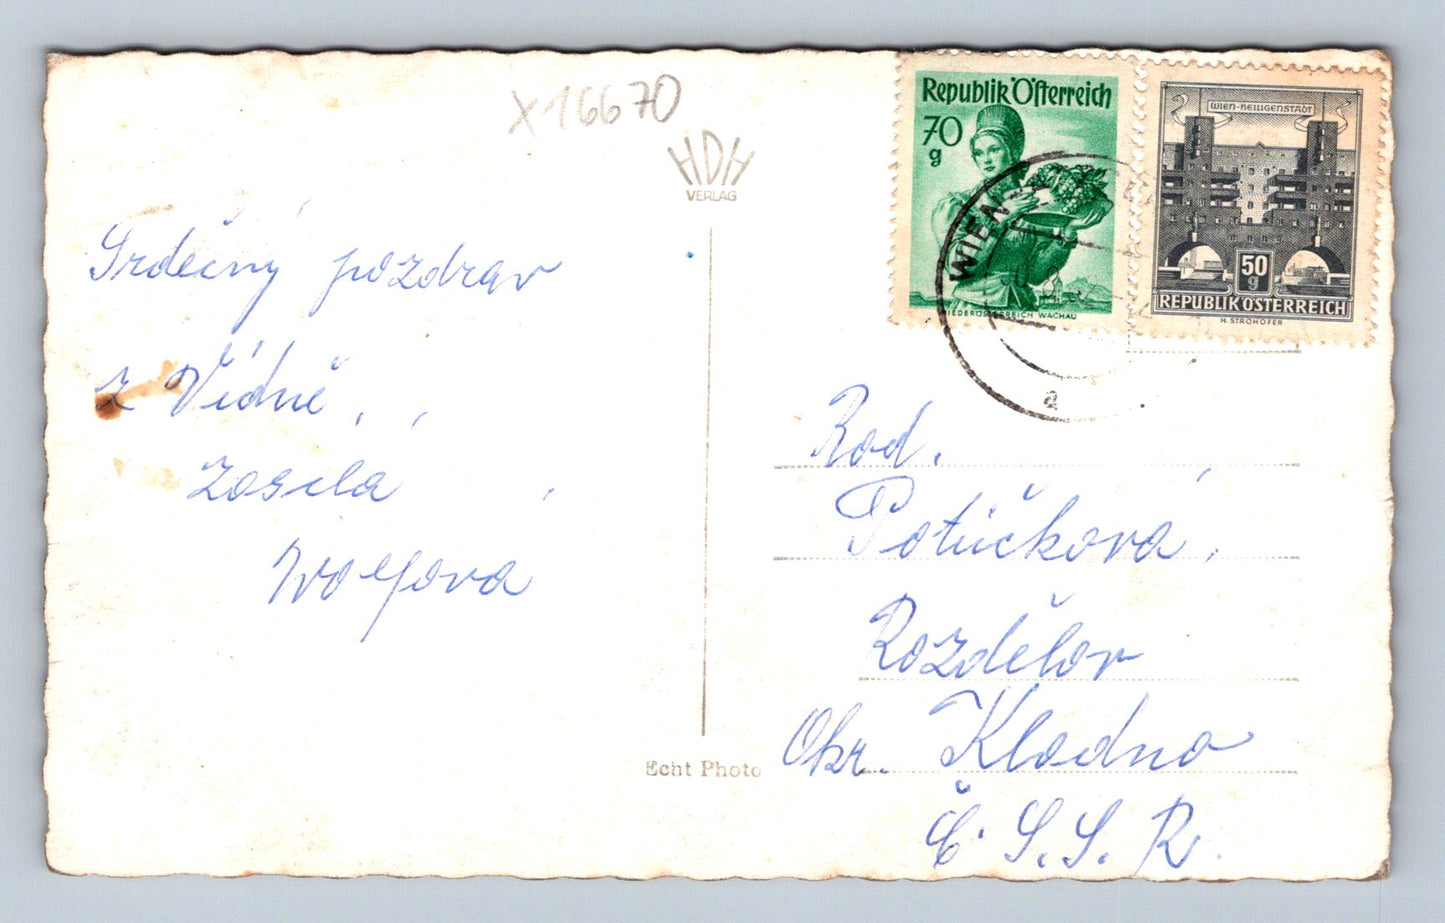 X16670
HDH
VERLAG
Srdečný pozdrav
z Vídně,
zasílá
Wolfová
Echt Photo
Republik Österreich
70
g
NIEDERÖSTERREICH WACHAU
WIEN-HEILIGENSTADT
50
g
REPUBLIK ÖSTERREICH
H. STROHOFER
WIEN
a
Rod.
Potůčková,
Rozdělov
Okr. Kladno
Č. S. S. R.